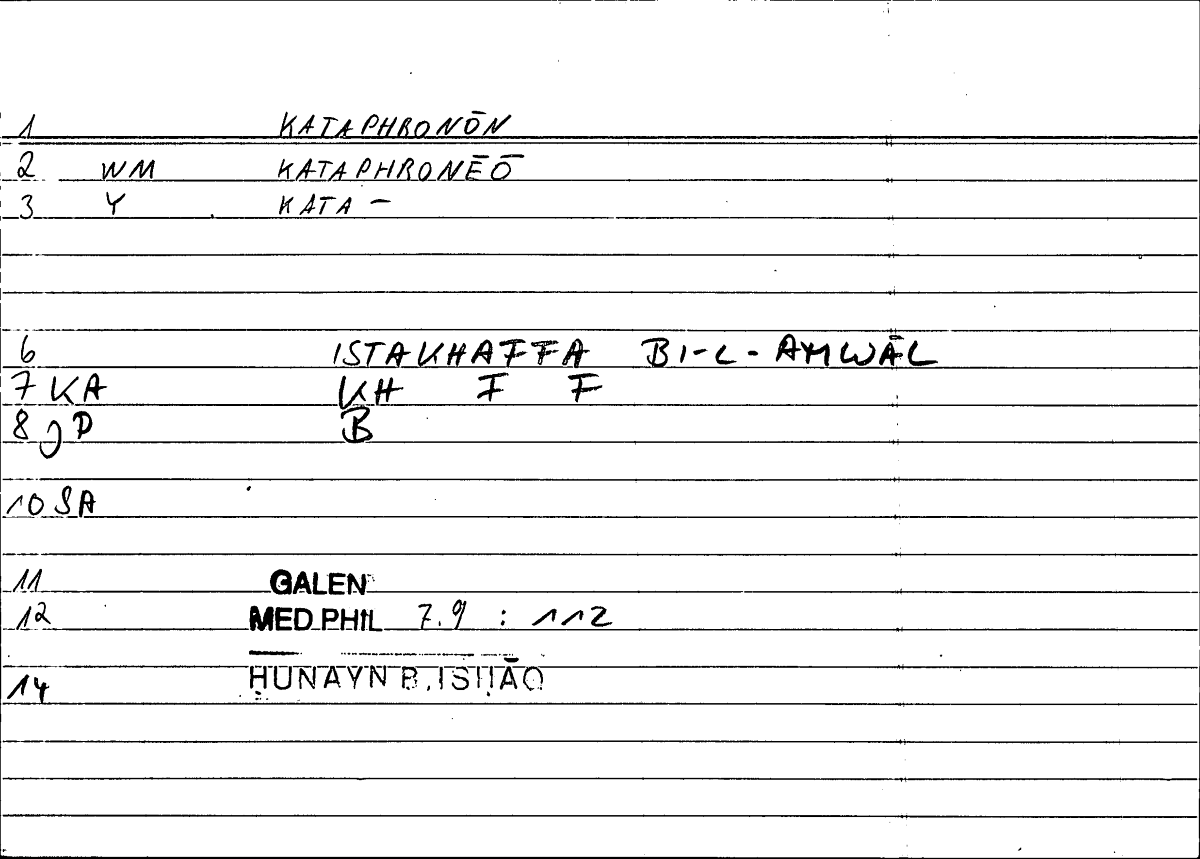 1 KATAPHRONŌN
2 WM KATAPHRONĒŌ
3 Y KATA -
6 ISTAKHAFFA BI-L-AMWĀL
7 KA KH F F
8 JP B
10 SA
11 GALEN
12 MED PHIL 7.9 : 112
14 ḤUNAYN B. ISḤĀQ